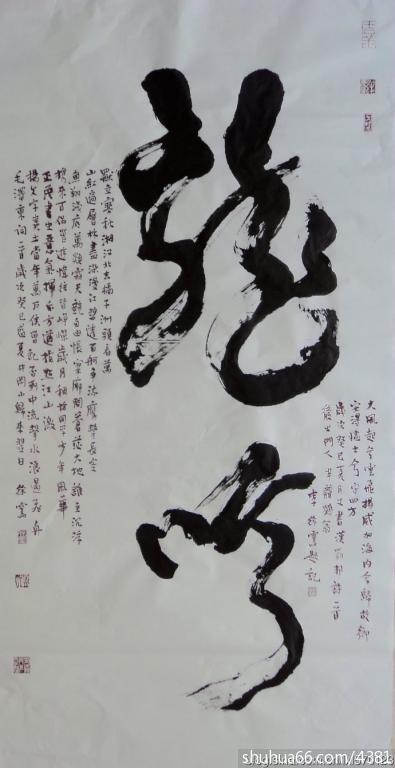 龍吟
大風起兮雲飛揚威加海内兮歸故鄉
安得猛士兮守四方
歲次癸巳月書漢劉邦詩一首
徐雲題記
獨立寒秋湘江北去橘子洲頭看萬
山紅遍層林盡染漫江碧透百舸爭流鷹擊長空
魚翔淺底萬類霜天競自由悵寥廓問蒼茫大地誰主沉浮
攜來百侶曾遊憶往昔崢嶸歲月稠恰同學少年風華
正茂書生意氣揮斥方遒指點江山激
揚文字糞土當年萬户侯曾記否到中流擊水浪遏飛舟
毛澤東詞一首歲次癸巳盛夏井岡山歸來翌日 徐雲
shuhua66.com/4381